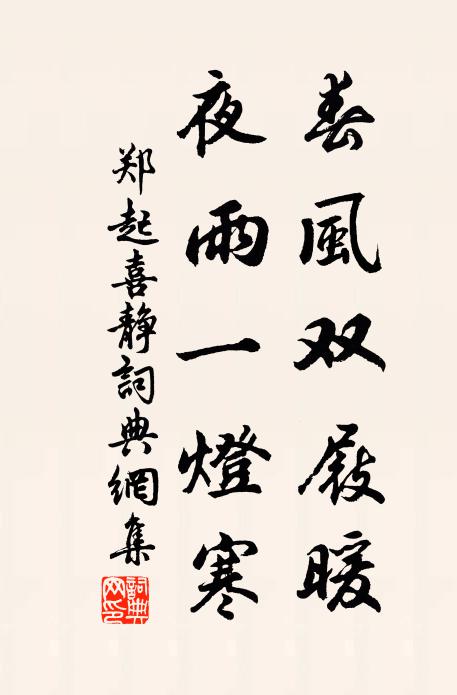 春風双屐暖
夜雨一燈寒
郑起喜静詞典網集
詞典网印